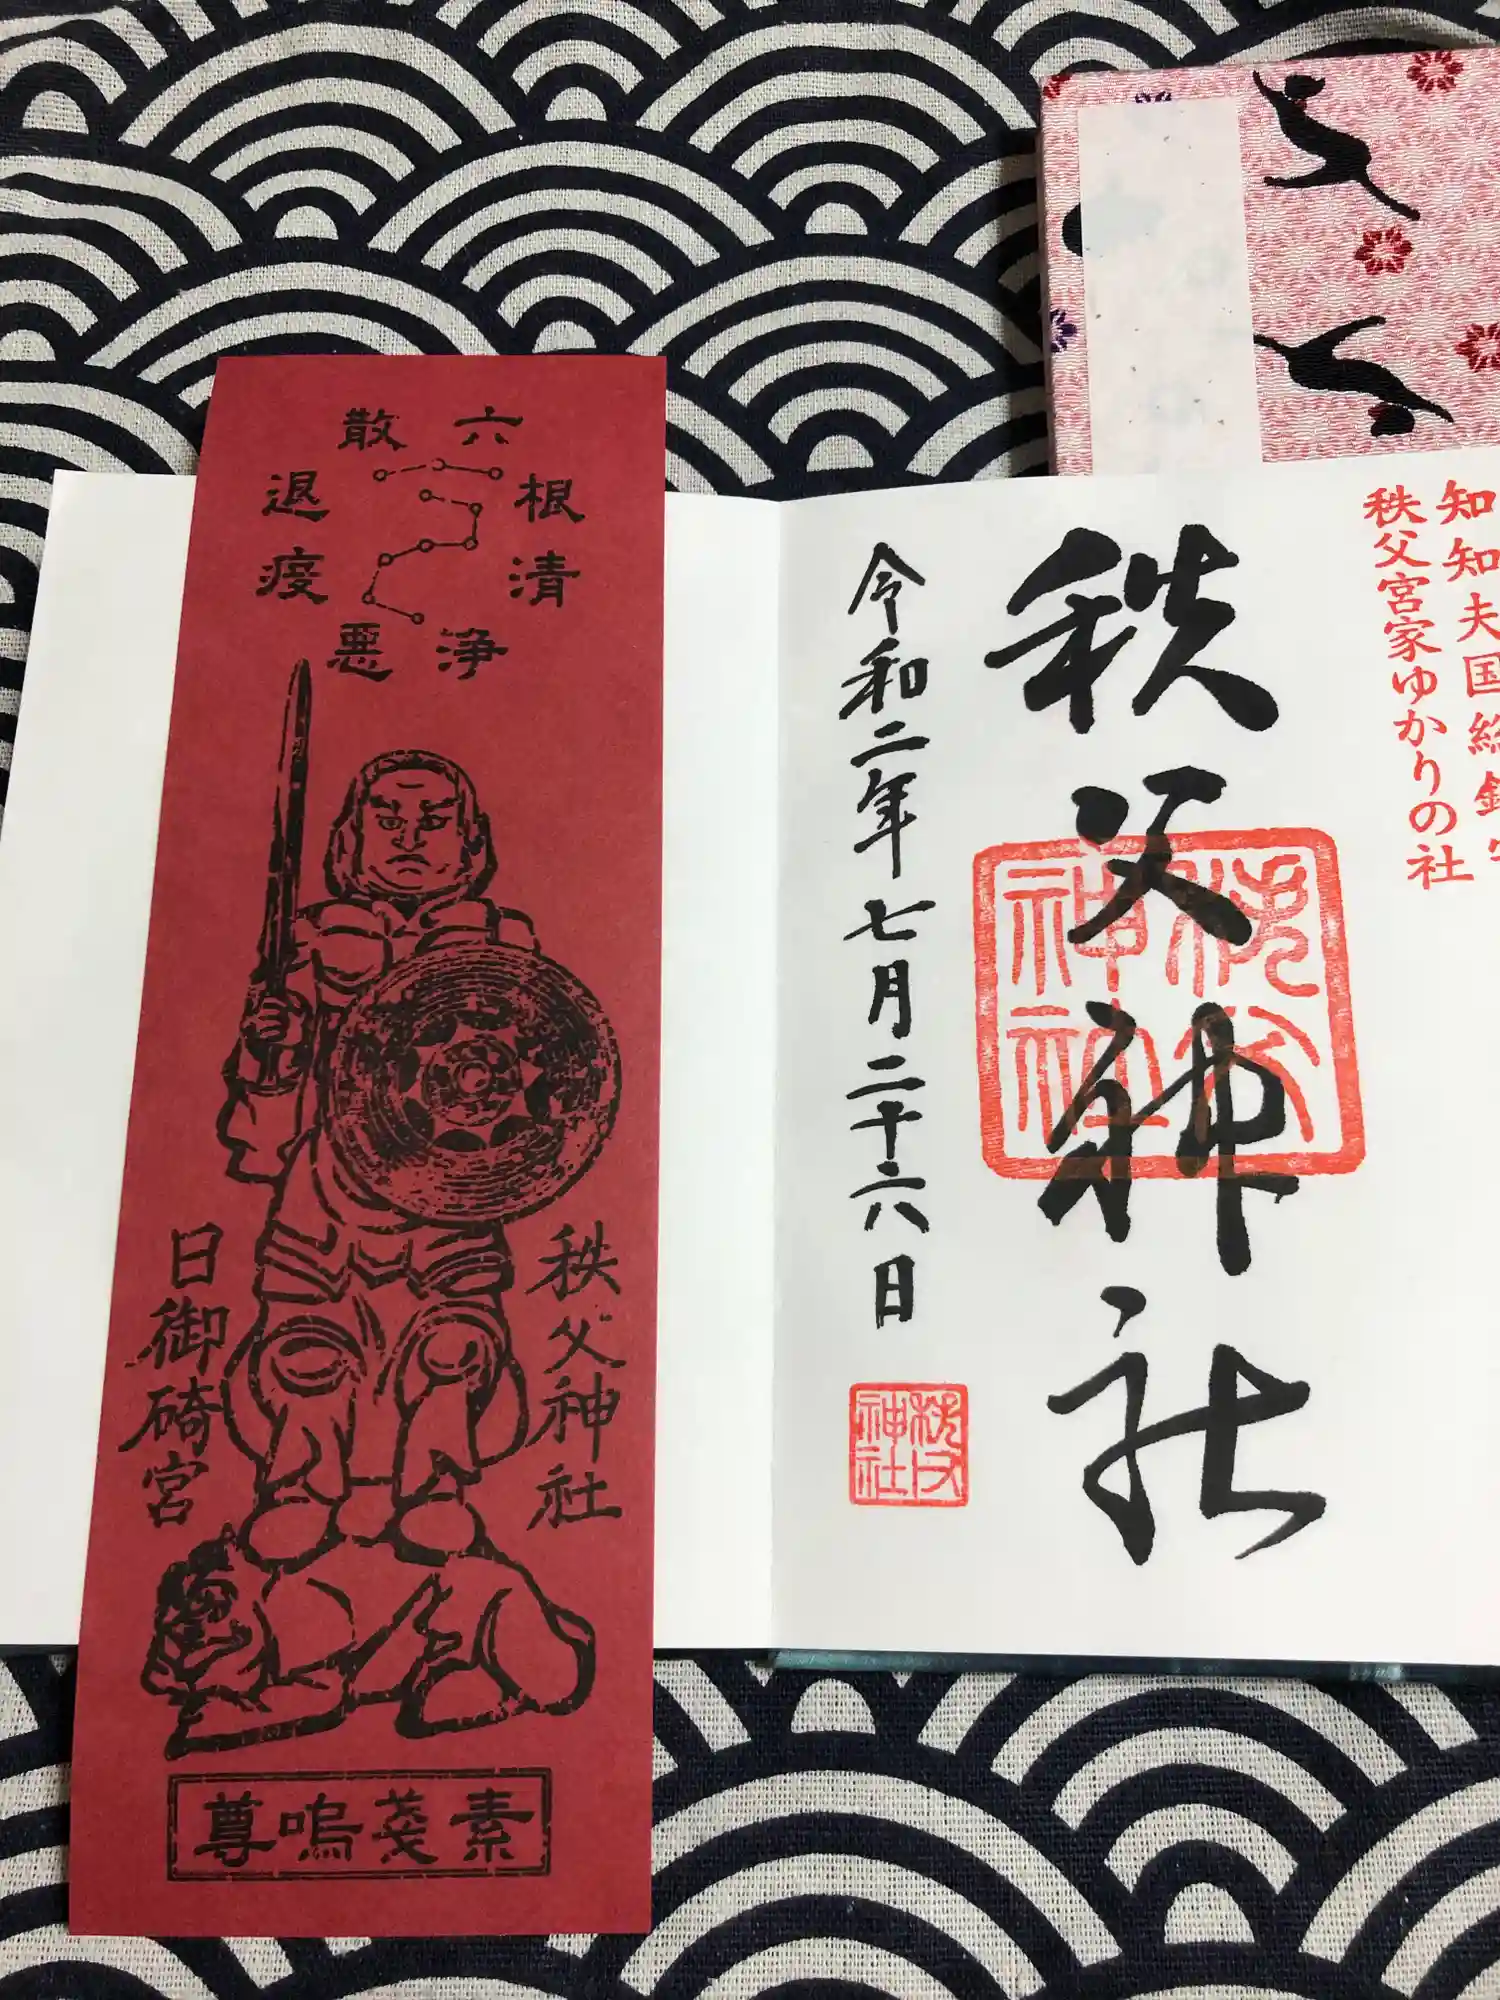 知知夫国総鎮守
秩父宮家ゆかりの社
秩父神社
秩父神社
令和二年七月二十六日
秩父神社
六根清浄
散退疫悪
秩父神社
日御碕宮
素戔嗚尊